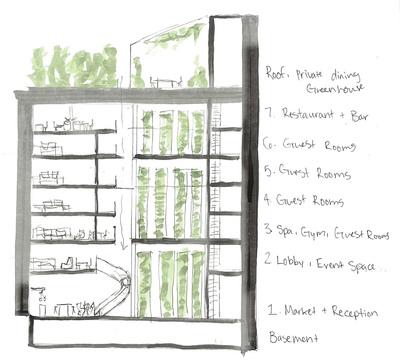 Roof. Private dining
Greenhouse
7. Restaurant + Bar
6. Guest Rooms
5. Guest Rooms
4. Guest Rooms
3. Spa, Gym, Guest Rooms
2 Lobby, Event Space
1. Market + Reception
Basement